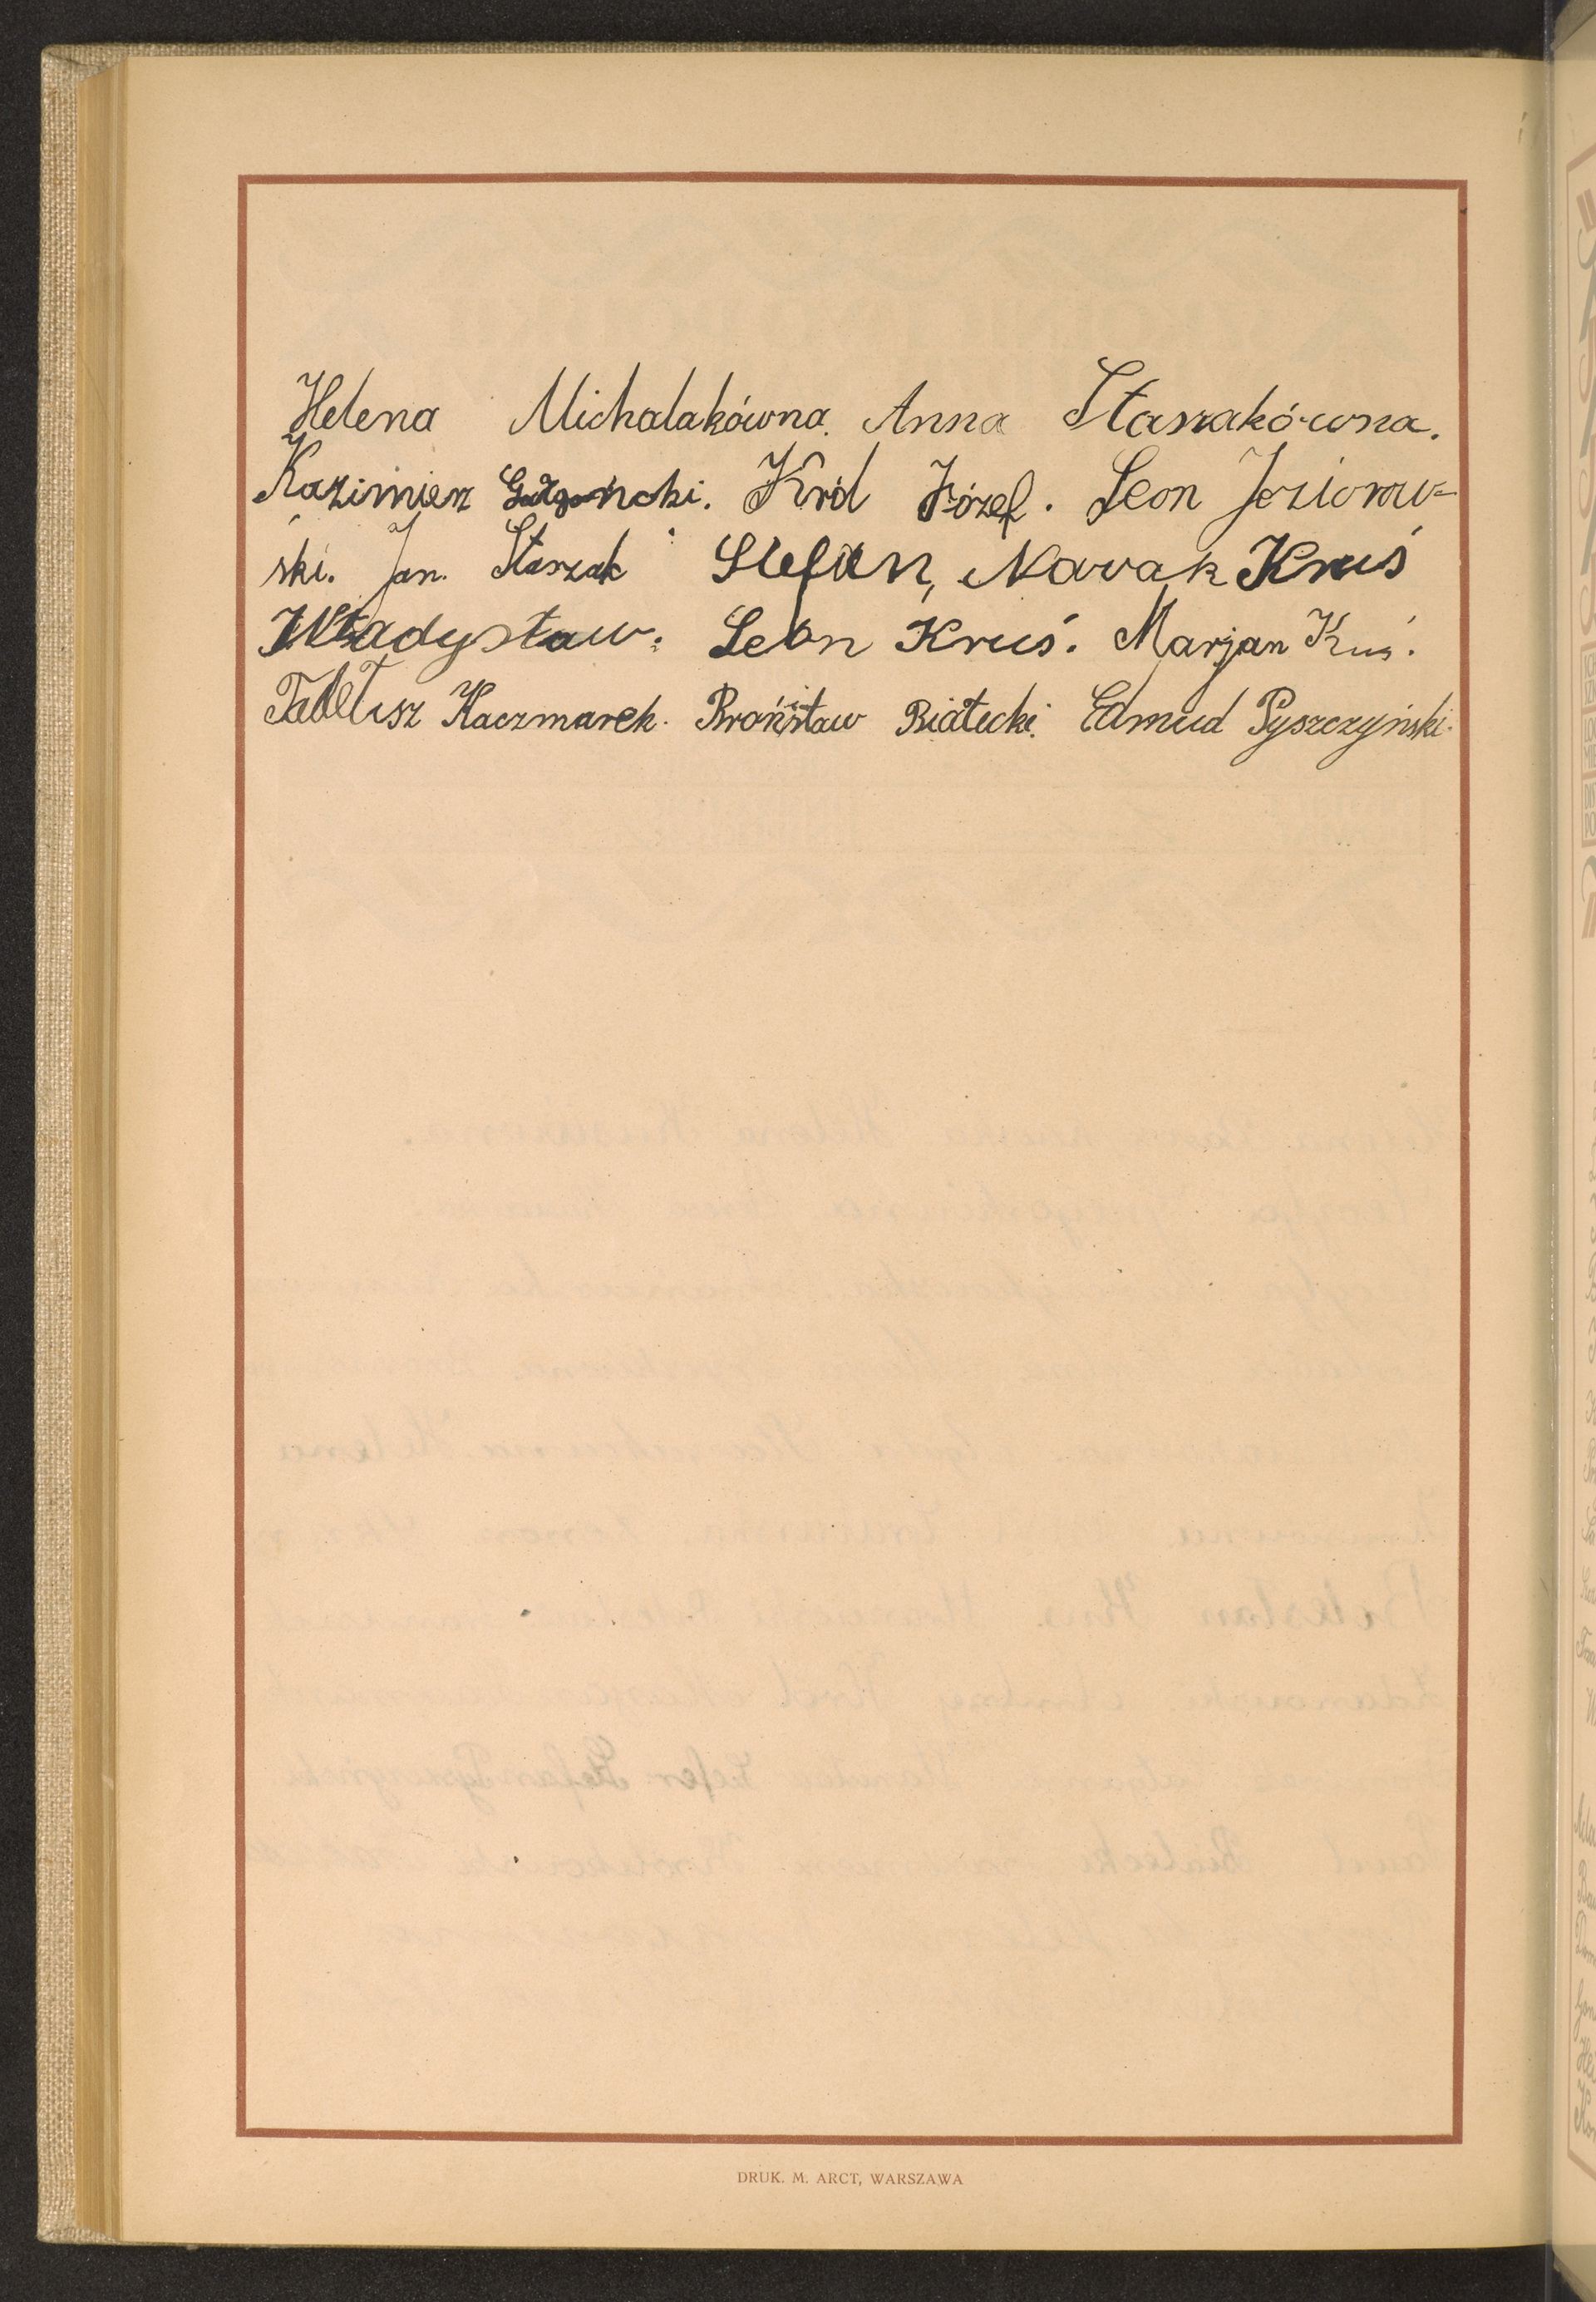 Helena Michalakówna. Anna Staszakówna.
Kazimierz Król Józef. Leon Jeziorow-
ski. Jan. Staszak Stefan, Nowak Kruś
Władysław. Leon Kruś. Marjan Kuś.
Tadeusz Kaczmarek. Bronisław Białecki. Edmud Pyszczyński.
DRUK. M. ARCT, WARSZAWA